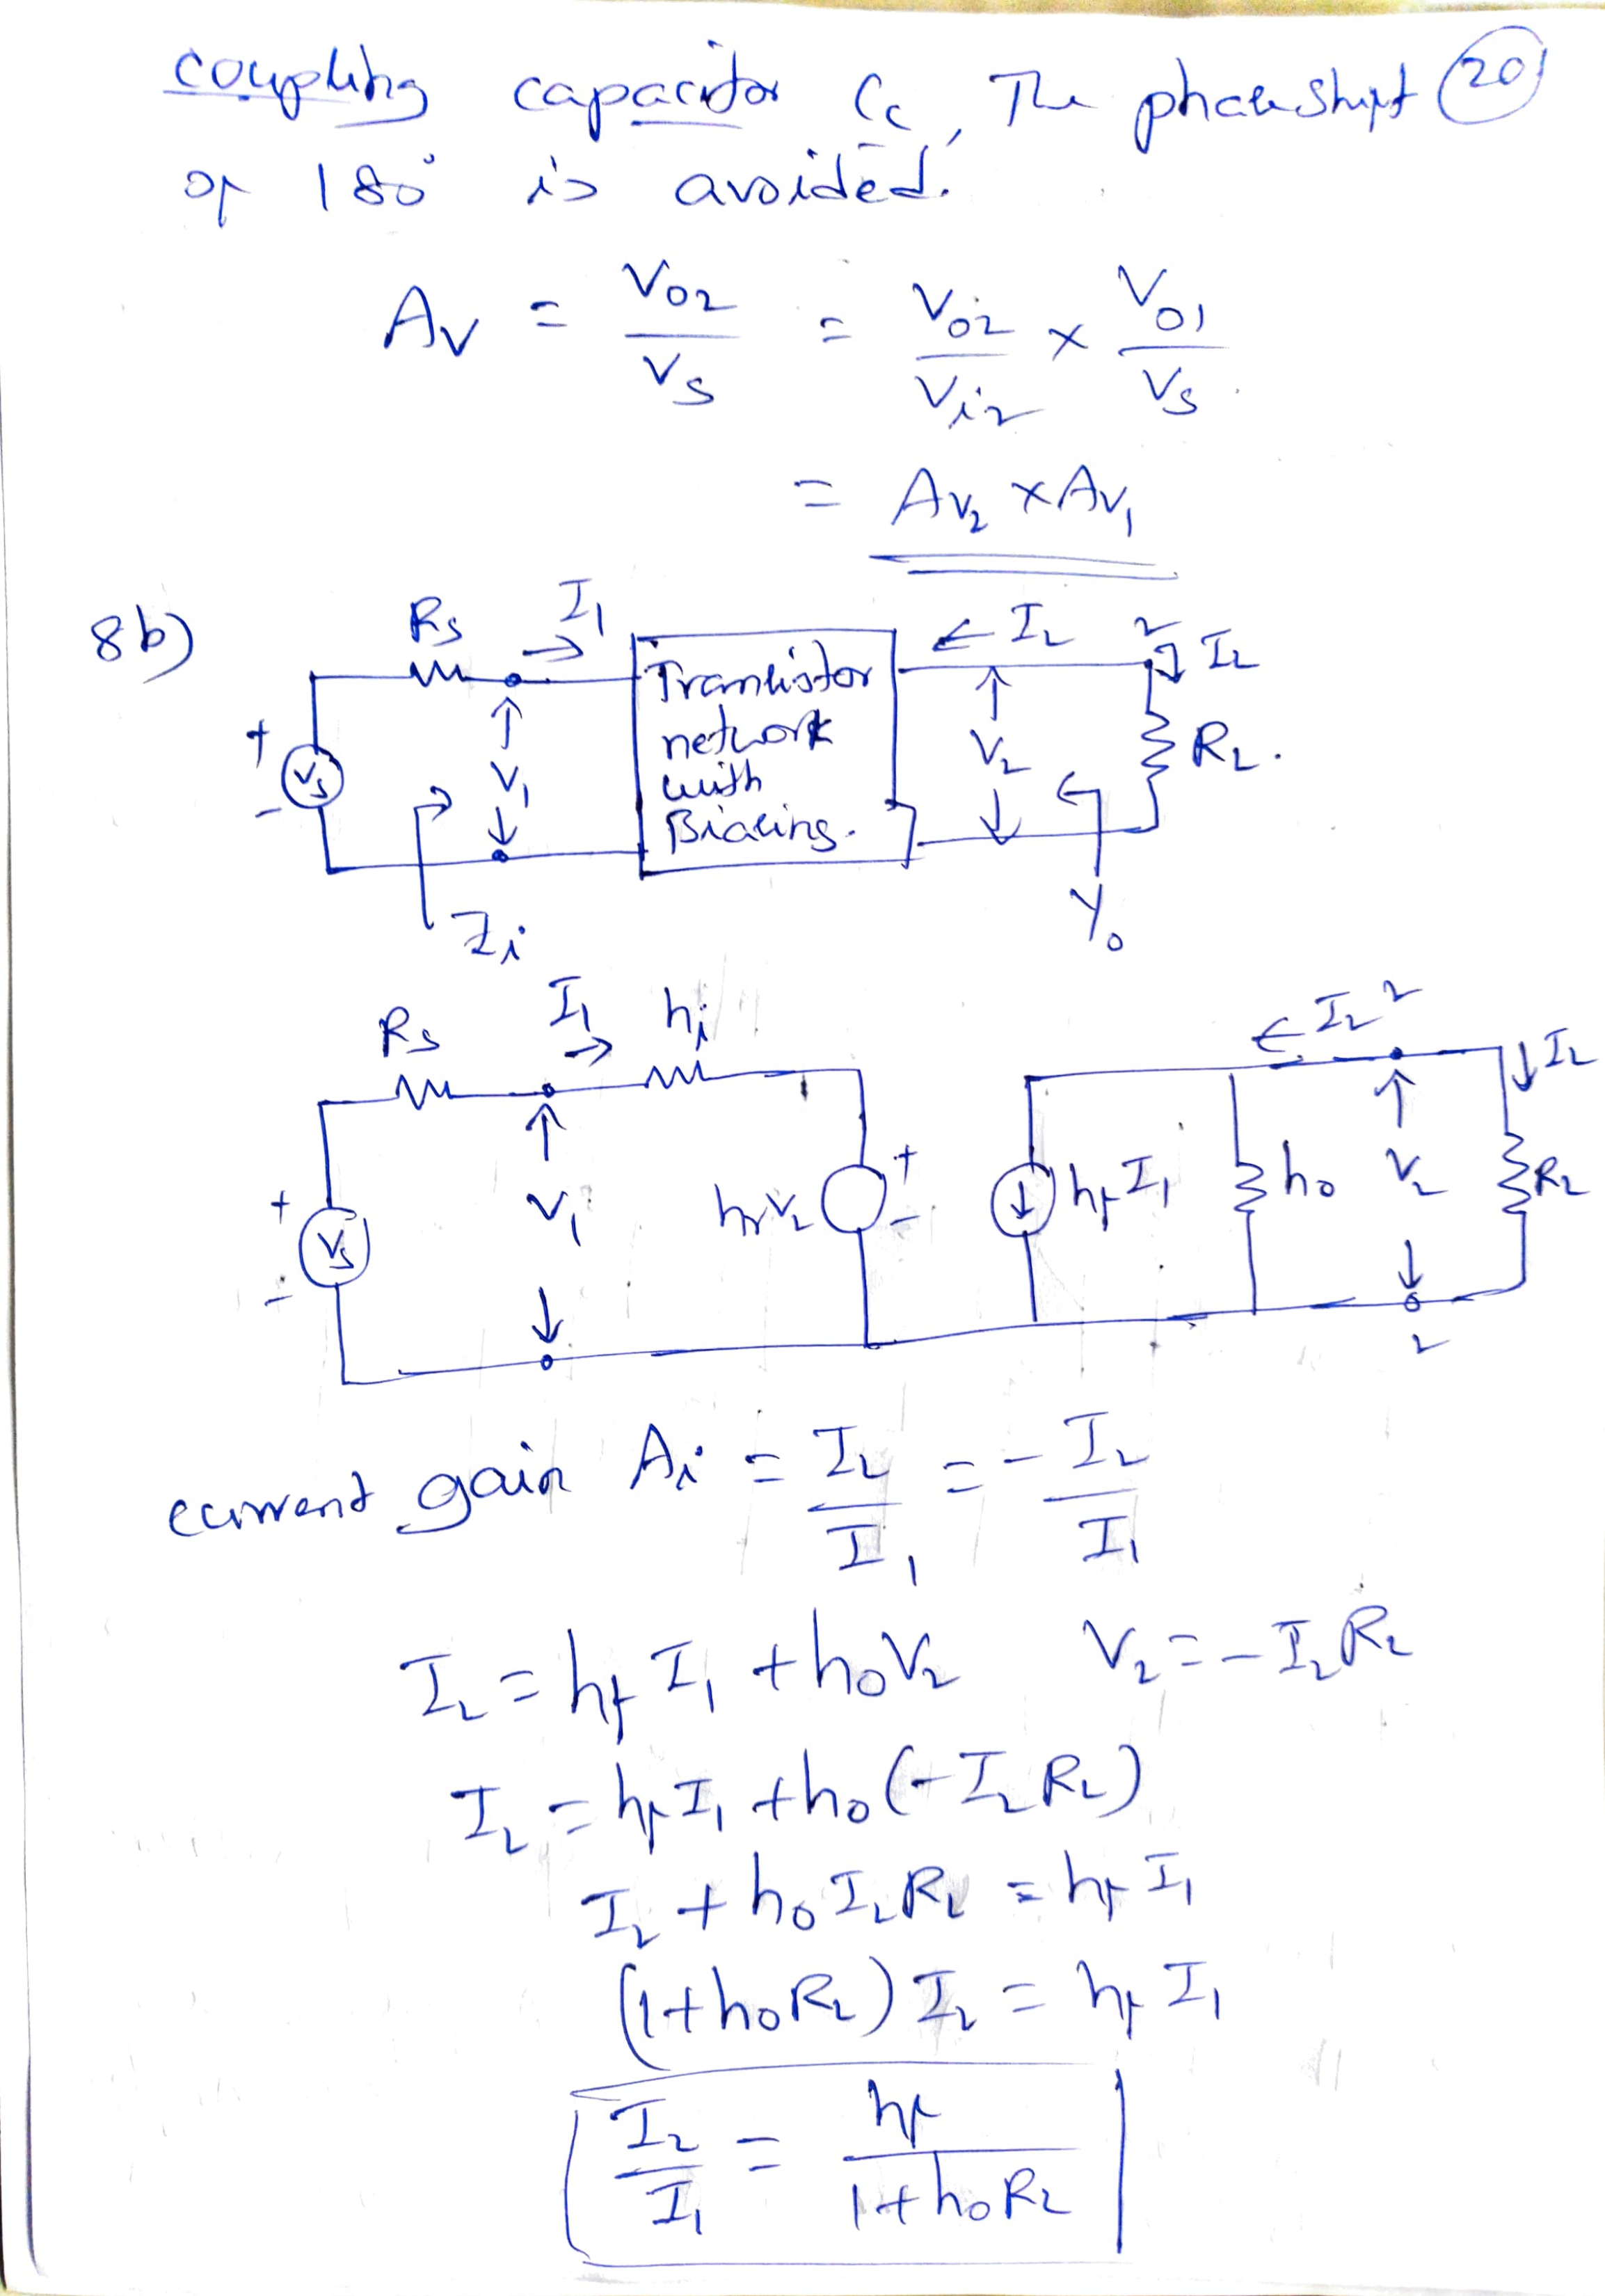 coupling capacitor Cc, The phaseshift 20
of 180° is avoided.
Av = Vo2/Vs = Vo2/Vi2 × Vo1/Vs
= Av2 × Av1
8b)
Rs I1 ← I2 2 IL
+ Vs - V1 Transistor network with Biasing. V2 RL.
Zi Yo
Rs I1 hi ← I2 2 IL
+ Vs - V1 hrV2 + - hfI1 ho V2 RL
2
current gain Ai = IL/I1 = - I2/I1
I2 = hf I1 + hoV2 V2 = -I2RL
I2 = hf I1 + ho(-I2 RL)
I2 + ho I2 RL = hf I1
(1+hoRL) I2 = hf I1
I2/I1 = hf/1+hoRL